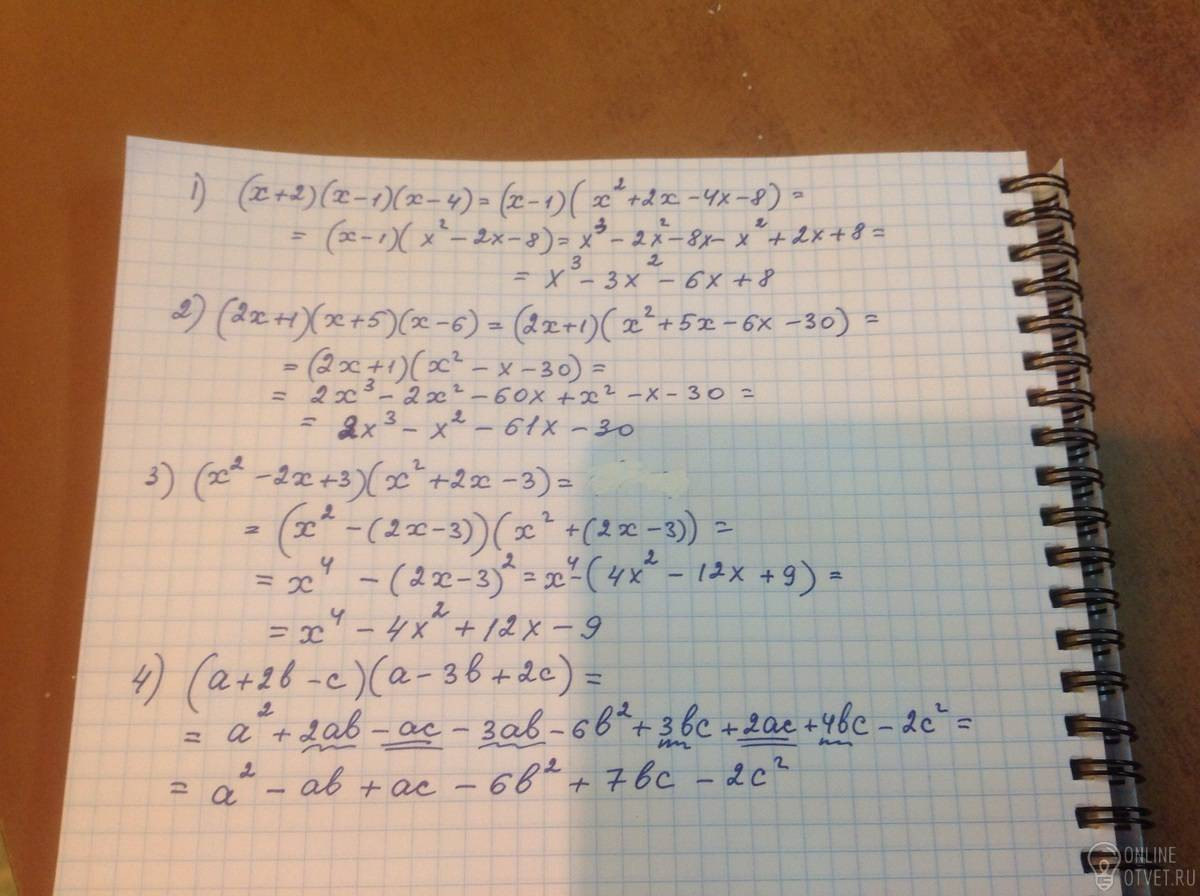 1) (x+2)(x-1)(x-4) = (x-1)(x²+2x-4x-8) =
= (x-1)(x²-2x-8) = x³-2x²-8x-x²+2x+8 =
= x³-3x²-6x+8
2) (2x+1)(x+5)(x-6) = (2x+1)(x²+5x-6x-30) =
= (2x+1)(x²-x-30) =
= 2x³-2x²-60x+x²-x-30 =
= 2x³-x²-61x-30
3) (x²-2x+3)(x²+2x-3) =
= (x²-(2x-3))(x²+(2x-3)) =
= x⁴-(2x-3)² = x⁴-(4x²-12x+9) =
= x⁴-4x²+12x-9
4) (a+2b-c)(a-3b+2c) =
= a²+2ab-ac-3ab-6b²+3bc+2ac+4bc-2c² =
= a²-ab+ac-6b²+7bc-2c²
ONLINE
OTVET.RU